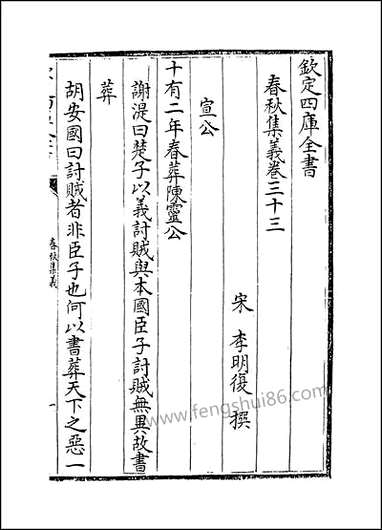 欽定四庫全書
春秋集義卷三十三
宋 李明復 撰
宣公
十有二年春葬陳靈公
謝湜曰楚子以義討賊與本國臣子討賊無異故書
葬
胡安國曰討賊者非臣子也何以書葬天下之惡一
春秋集義
一
www.fengshui86.com